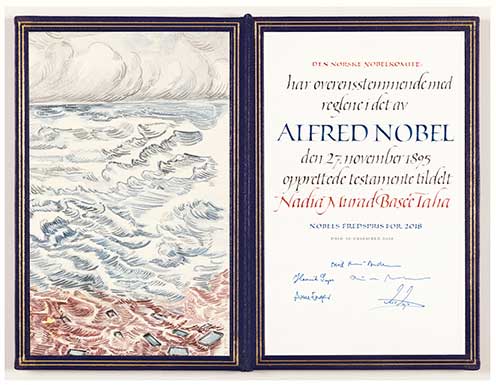 DEN NORSKE NOBELKOMITE
har overensstemmende med
reglene i det av
ALFRED NOBEL
den 27. november 1895
opprettede testamente tildelt
Nadia Murad Basee Taha
NOBELS FREDSPRIS FOR 2018
OSLO, 10. DESEMBER 2018